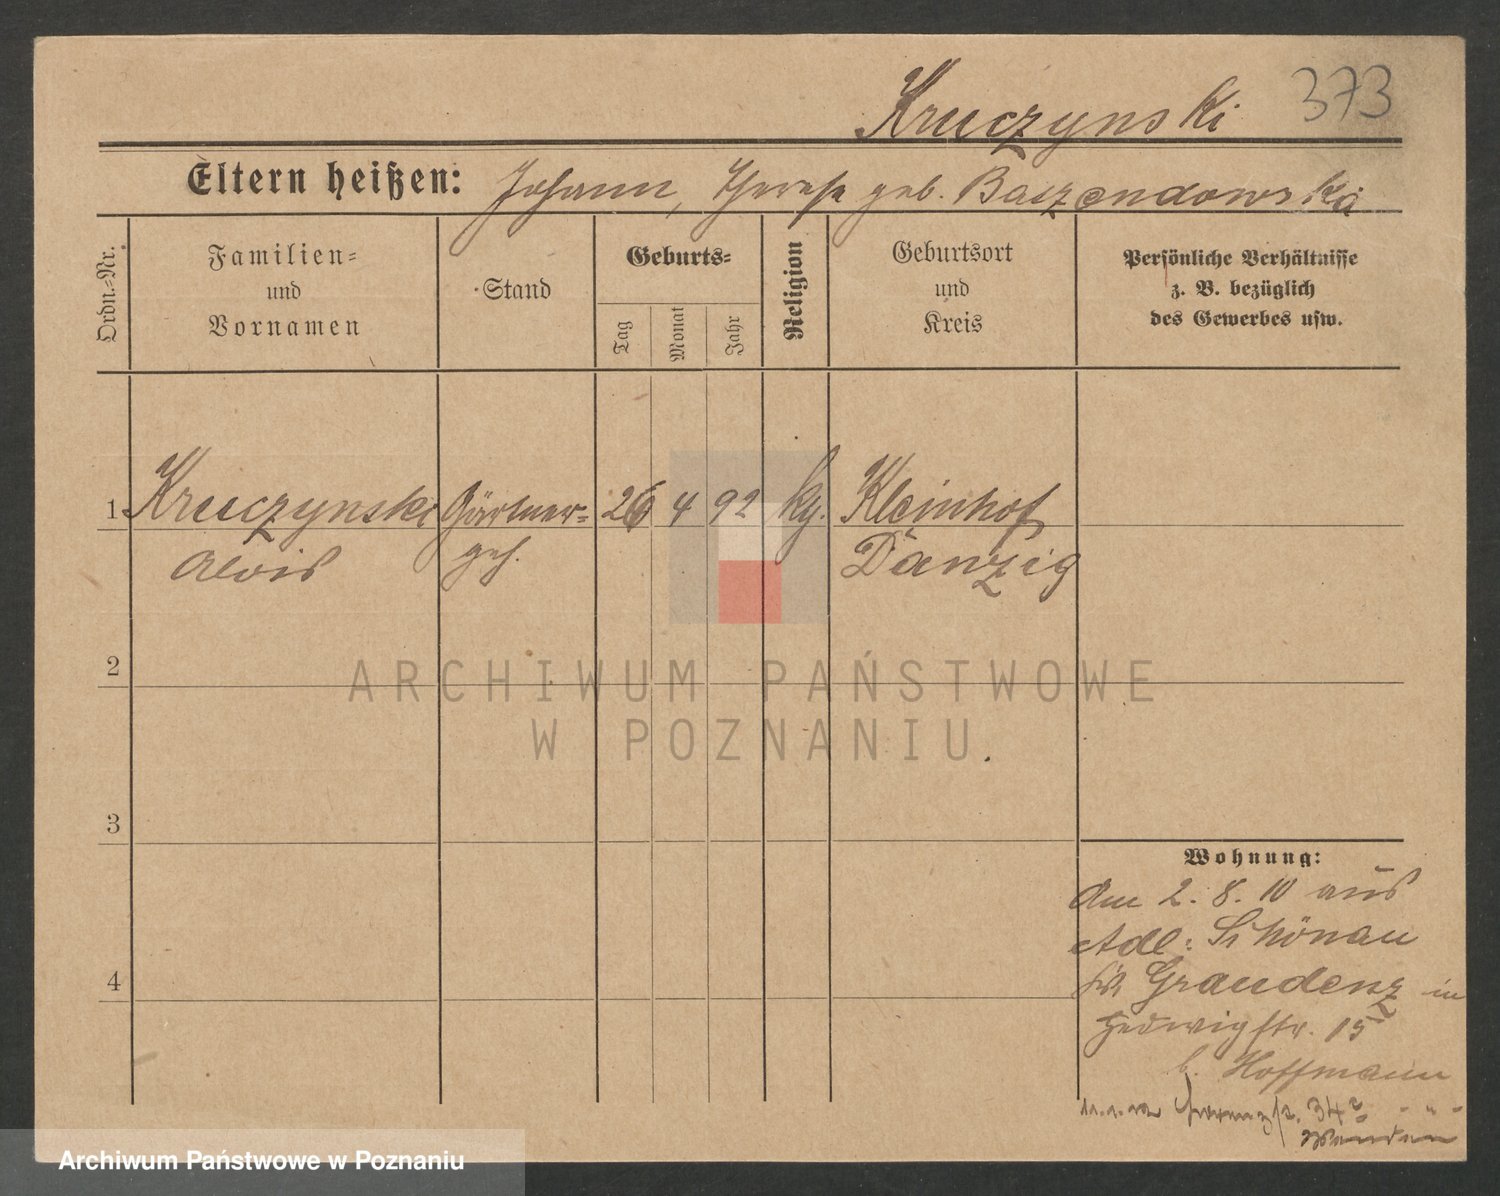 Kruczynski 373
Eltern heißen: Johann, Therese geb. Baszendowska
Ordn.-Nr.
Familien-
und
Vornamen
Stand
Geburts-
Tag
Monat
Jahr
Religion
Geburtsort
und
Kreis
Persönliche Verhältnisse
z. B. bezüglich
des Gewerbes usw.
1 Kruczynski Gärtner- 26 4 92 kg. Kleinhof
Alois geh. Danzig
2
ARCHIWUM PAŃSTWOWE
W POZNANIU
3
Wohnung:
Am 2. 8. 10 aus
Adl: Schönau
Kr. Graudenz in
4
Hedwigstr. 15
b. Hoffmann
34
Archiwum Państwowe w Poznaniu